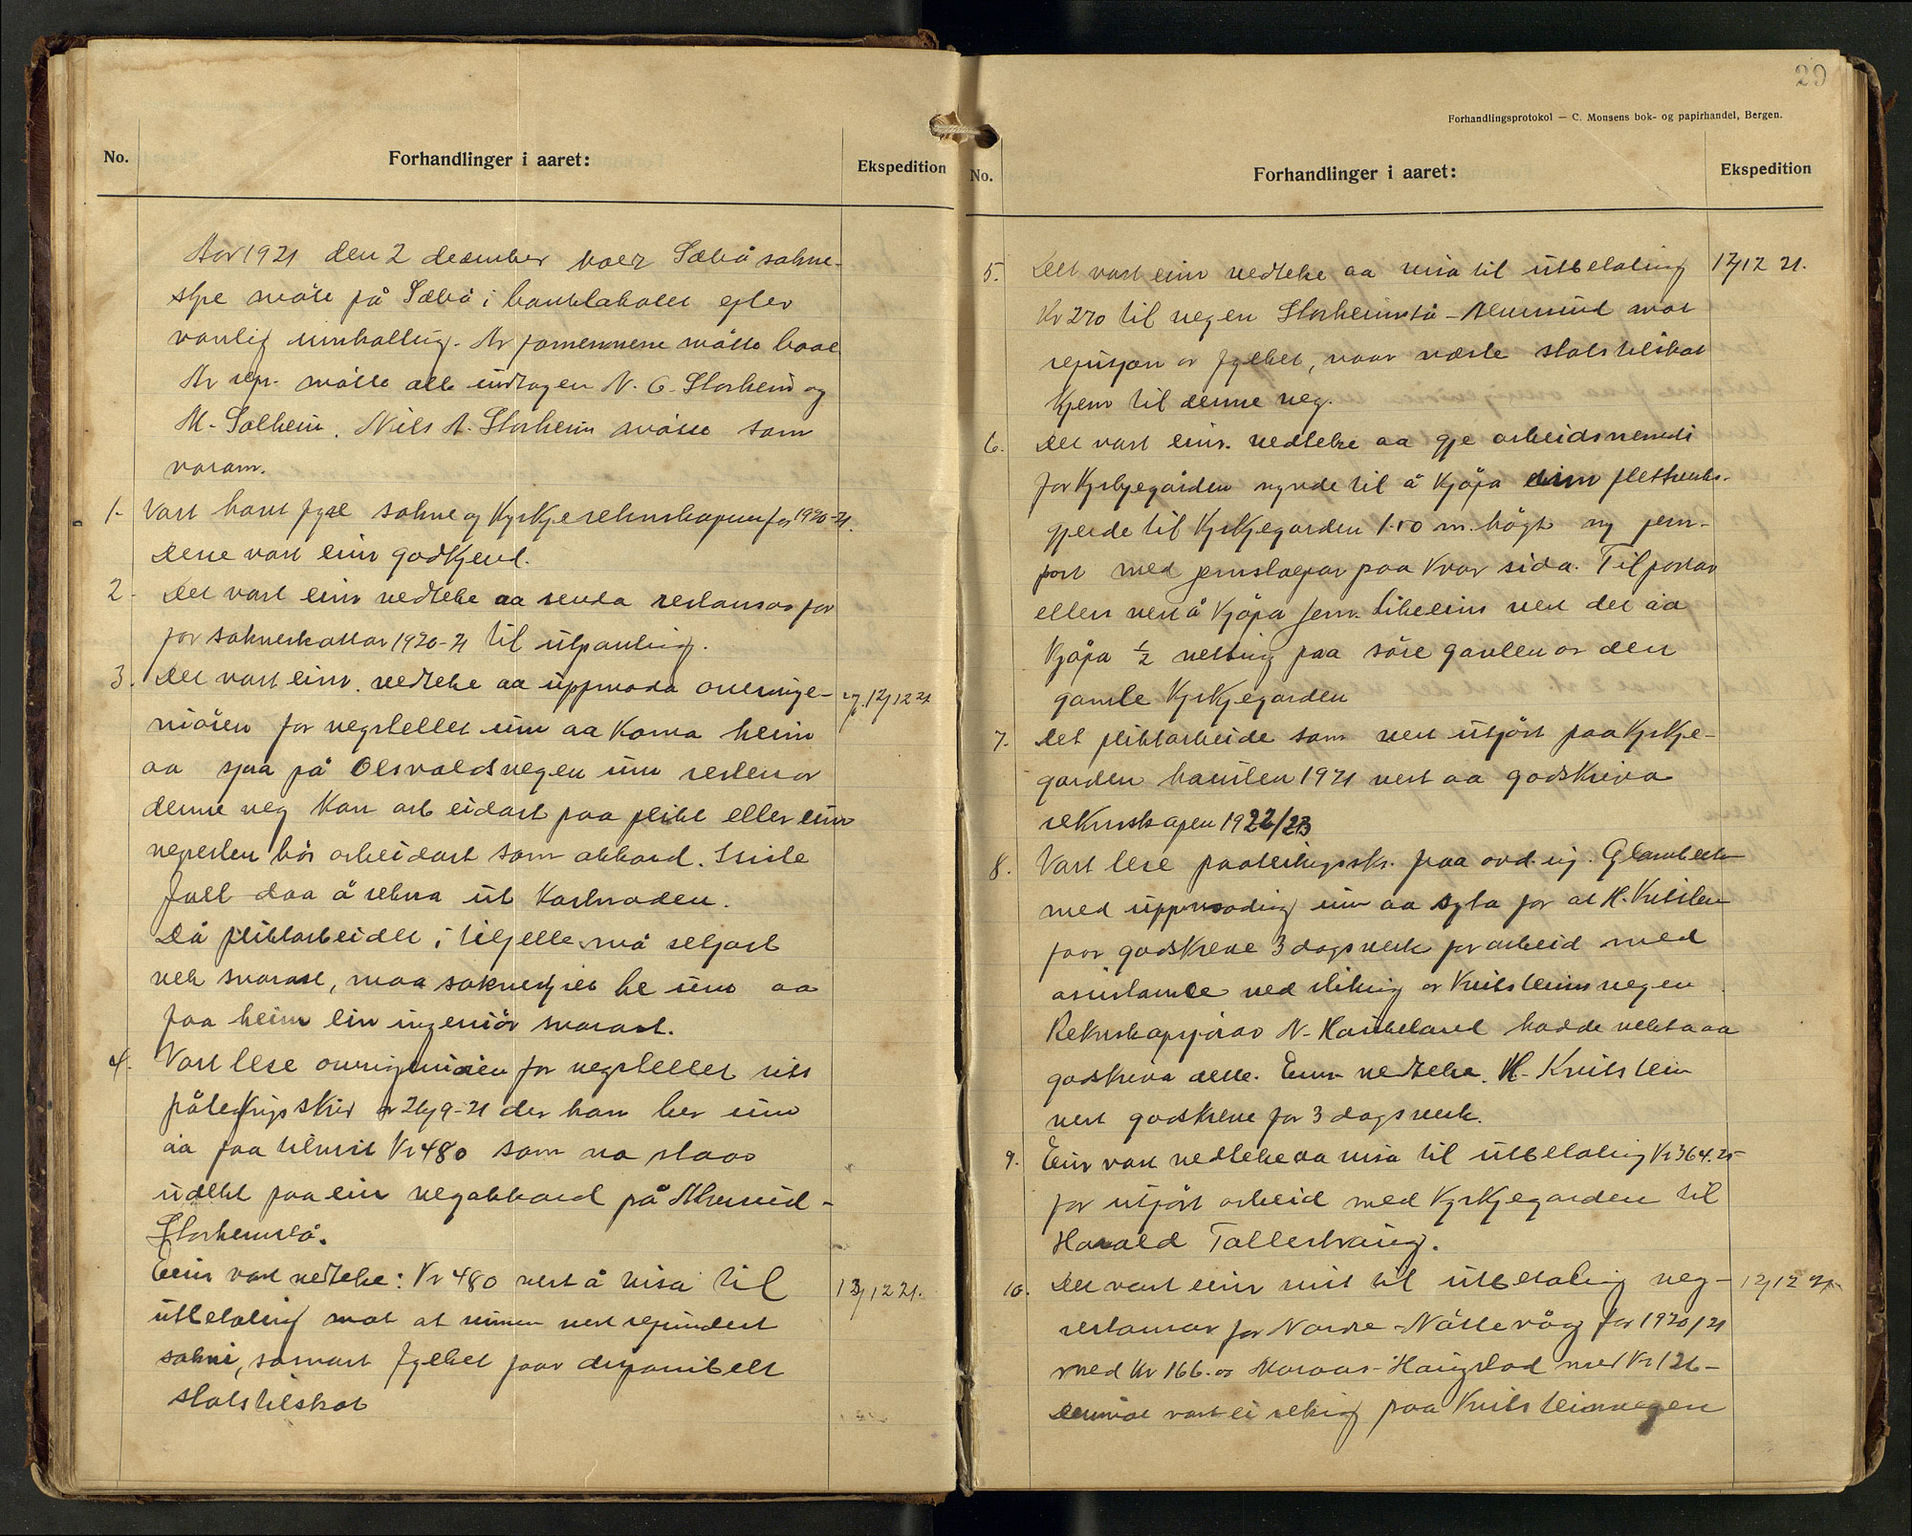 No.
Forhandlinger i aaret:
Ekspedition
Aar 1921 den 2 desember heldt Sæbø sokne-
styre møte på Sæbø i banklokalet efter
vanlig innkalling. Av formennene møtte
Av repr. møtte alle undtagen N. O. Storheim og
M. Solheim. Nils A. Storheim møtte som
varam.
1. Vart havt fyre sokne og Kyrkjerekneskapen for 1920-21.
Desse vart einr godkjend.
2. Det vart einr vedteke aa senda restansar for
for sokneskattar 1920-21 til utpanting.
3. Det vart einr. vedteke aa uppmoda overinge- 12/12 21
niøren for vegstellet um aa koma heim
aa sjaa på Olsvoldsvegen um resten av
denne veg kan arbeidast paa plikt eller um
vegresten bør arbeidast som akkord. I siste
fall daa å rekna ut kostnaden.
Då pliktarbeidet i tilfelle må seljast
vek snarast, maa soknestyret be um aa
faa heim ein ingeniör snarast.
4. Vart lese overingeniören for vegstellet sitt
påteiknigsskriv av 26/9-21 der han ber um
aa faa tilvist Kr 480 som no staar
udekt paa ein vegakkord på
Storheimslå.
Einr vart vedteke: Kr 480 vert å visa til 13/12 21.
utbetaling mot at summen vert refundert
sokni, so snart fylket faar disponibelt
statstilskot
29
Forhandlingsprotokol — C. Monsens bok- og papirhandel, Bergen.
No.
Forhandlinger i aaret:
Ekspedition
5. Det vart einr vedteke aa visa til utbetaling 12/12 21.
Kr 270 til vegen Storheimslå - mot
refusjon av fylket, naar næste statstilskot
kjem til denne veg.
6. Det vart einr. vedteke aa gje arbeidsnemdi
for Kyrkjegården mynde til å kjøpa flettverks-
gjerde til Kyrkjegarden 1.10 m. høgt ny jern-
port med jernstolpar paa kvar sida. Til portar
ellers vert å kjøpa jern. Likeeins vert det aa
kjøpa ½ netting paa søre gavlen av den
gamle Kyrkjegarden
7. Det pliktarbeide som vert utført paa Kyrkje-
garden hausten 1921 vert aa godskriva
reknskapen 1922/23
8. Vart lese paateikngsskr. fraa avd.ing.
med uppmoding um aa syta for at H. Kvitstein
faar godskreve 3 dagsverk for arbeid med
assistanse ved stiking av Kvitsteinsvegen
Reknskapsførar N. Haukeland hadde vekta aa
godskriva dette. Einr vedteke. H. Kvitstein
vert godskreve for 3 dagsverk.
9. Einr vart vedteke aa visa til utbetaling Kr 364.25
for utført arbeid med Kyrkjegarden til
Harald
10. Det vart einr vist til utbetaling veg- 12/12 21
restansar for Nordre - Nåttevåg for 1920/21
med Kr 166.- og - Haugstad med Kr 126-
Dermot vart ei rekning paa Kvitsteinvegen